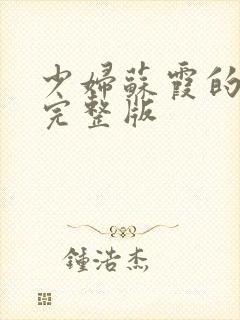 少婦蘇霞的
完整版
鍾浩杰